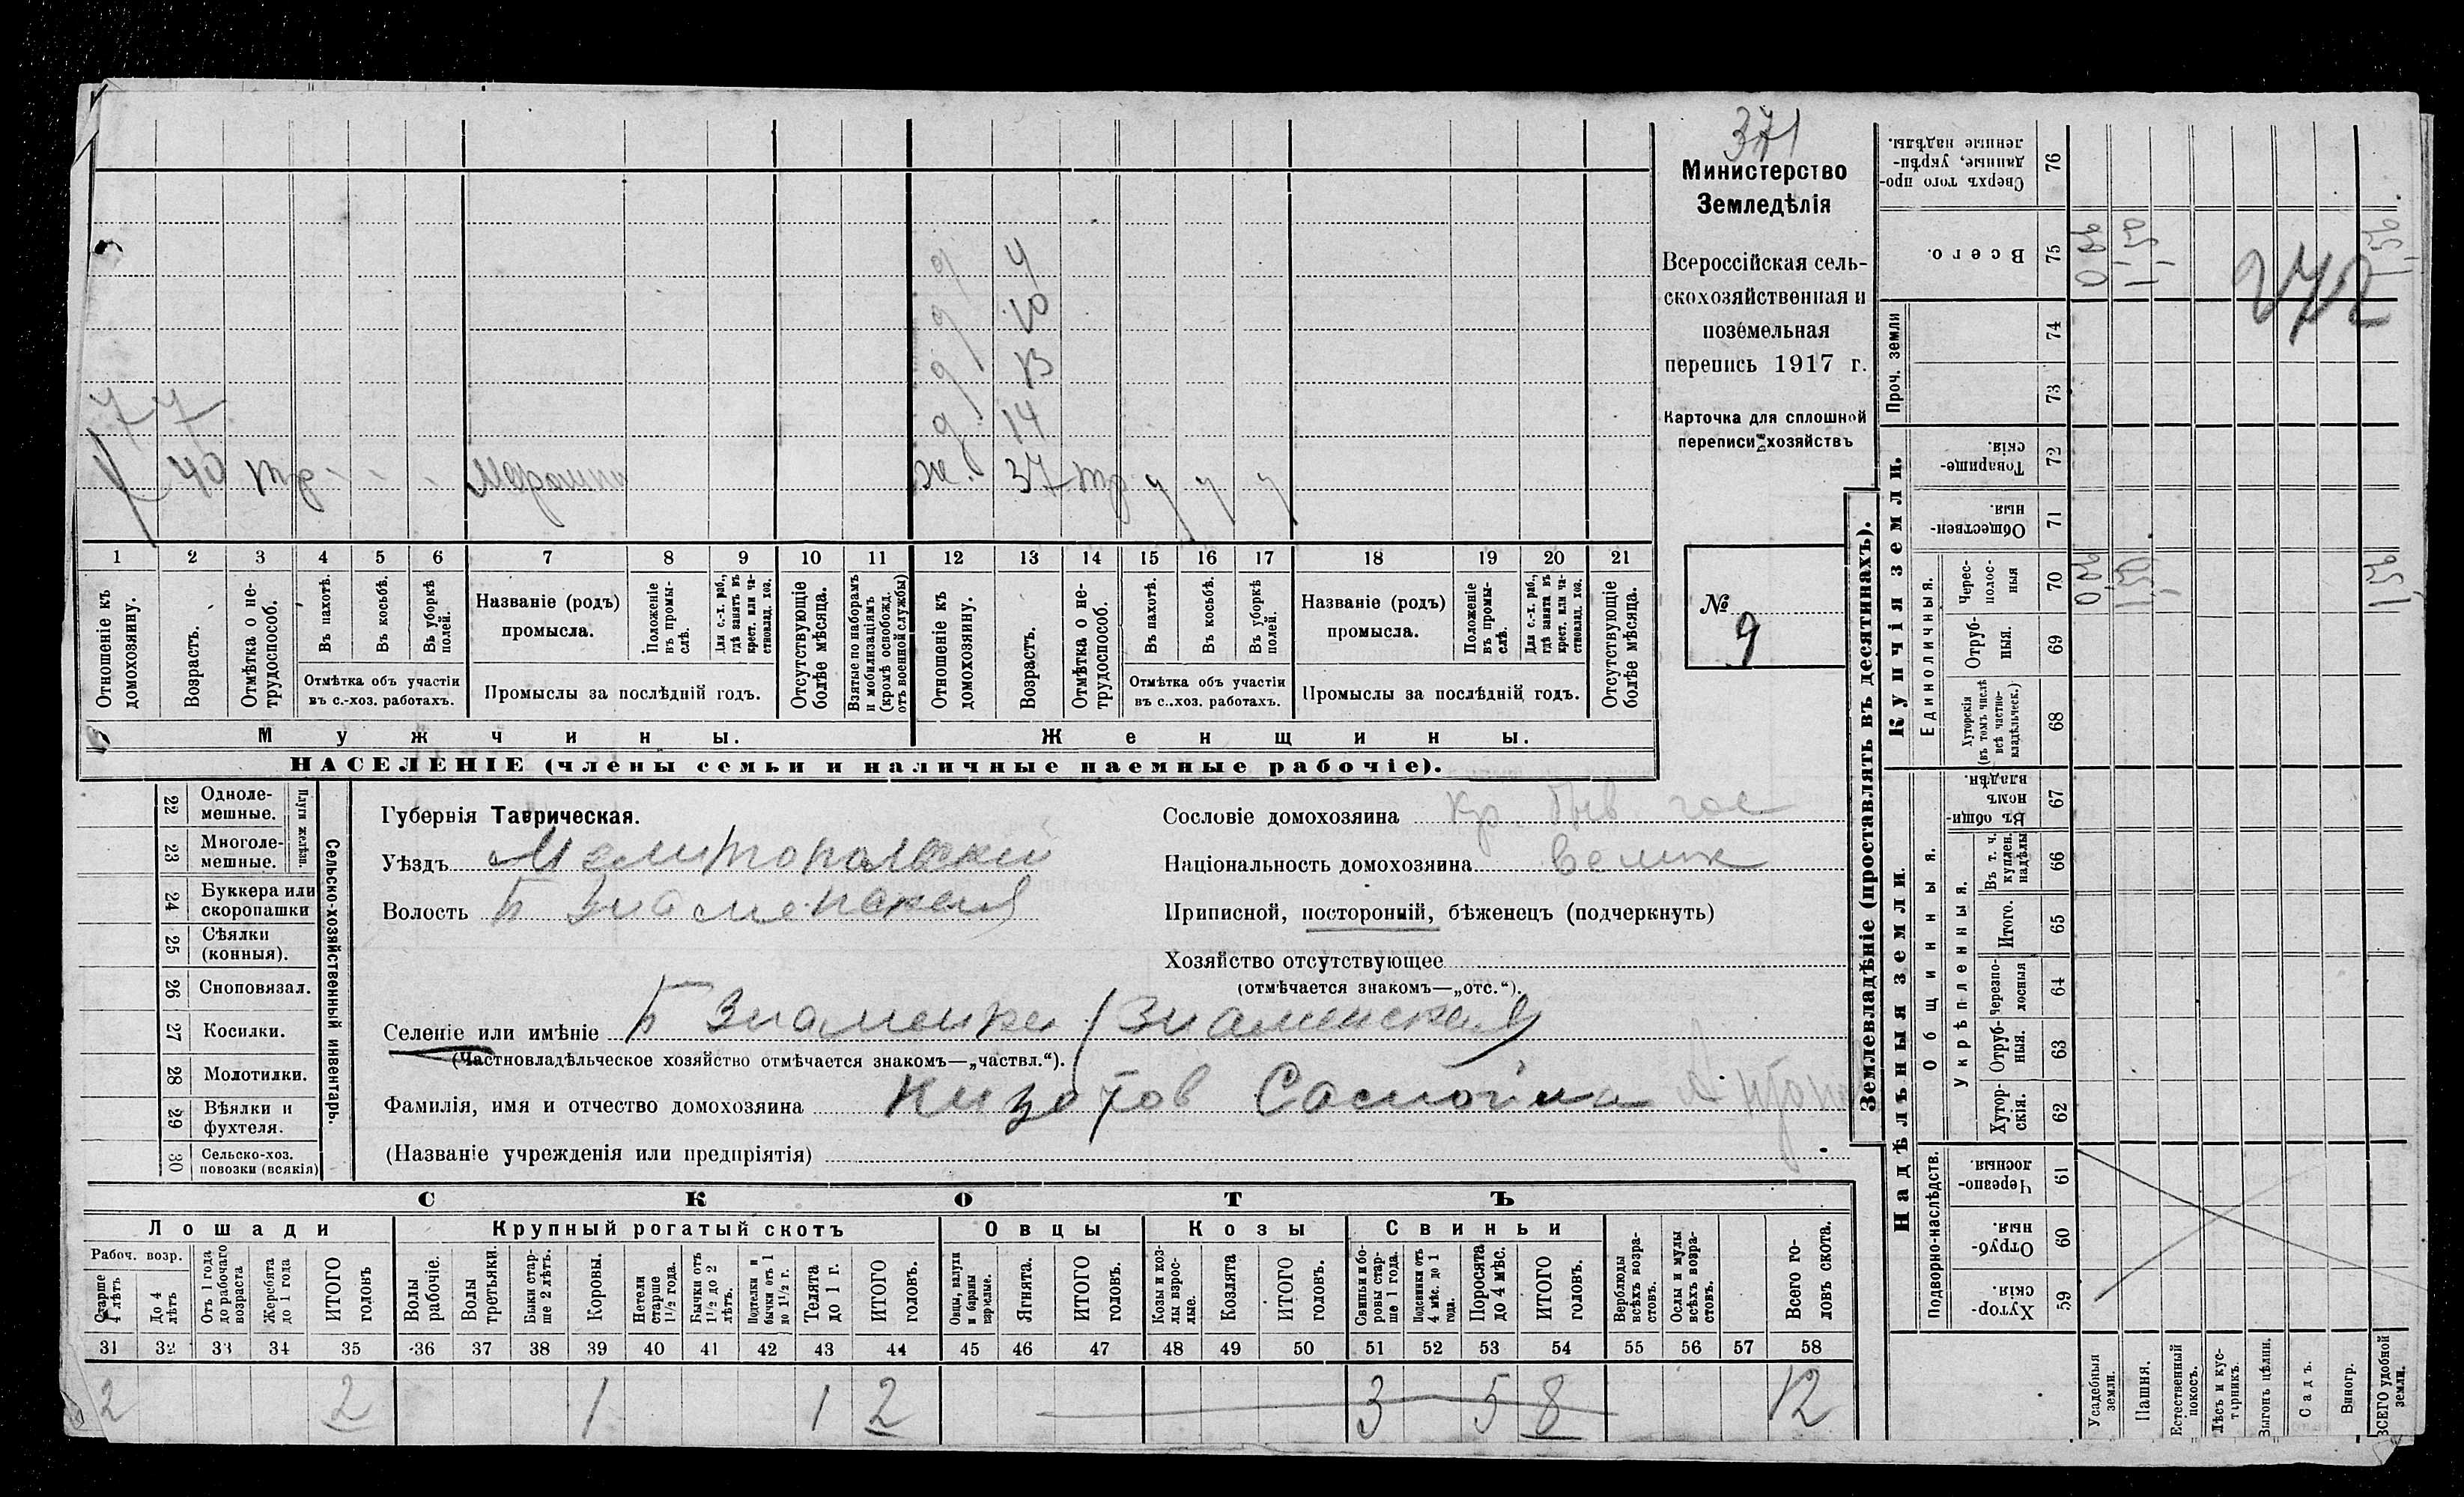 371
Министерство
Земледѣлія
Всероссійская сель-
скохозяйственная и
поземельная
перепись 1917 г.
Карточка для сплошной
переписи хозяйствъ
№ 9
д 4
д 10
д 13
д 14
77
40
ж. 37
1 2 3 4 5 6 7 8 9 10 11 12 13 14 15 16 17 18 19 20 21
Отношеніе къ домохозяину.
Возрастъ.
Отмѣтка о не-трудоспособ.
Въ пахотѣ.
Въ косьбѣ.
Въ уборкѣ полей.
Отмѣтка объ участіи
въ с.-хоз. работахъ.
Названіе (родъ)
промысла.
Положеніе въ промы-слѣ.
Для с.-х. раб., гдѣ занятъ въ крест. или ча-стновлад. хоз.
Промыслы за послѣдній годъ.
Отсутствующіе болѣе мѣсяца.
Взятые по наборамъ и мобилизаціямъ (кромѣ освобожд. отъ военной службы)
Отношеніе къ домохозяину.
Возрастъ.
Отмѣтка о не-трудоспособ.
Въ пахотѣ.
Въ косьбѣ.
Въ уборкѣ полей.
Отмѣтка объ участіи
въ с.-хоз. работахъ.
Названіе (родъ)
промысла.
Положеніе въ промы-слѣ.
Для с.-х. раб., гдѣ занята въ крест. или ча-стновлад. хоз.
Промыслы за послѣдній годъ.
Отсутствующіе болѣе мѣсяца.
Мужчины.
Женщины.
НАСЕЛЕНІЕ (члены семьи и наличные наемные рабочіе).
Сельско-хозяйственный инвентарь.
Плуги желѣзн.
22 Однолемешные.
23 Многолемешные.
24 Буккера или скоропашки
25 Сѣялки (конныя).
26 Сноповязал.
27 Косилки.
28 Молотилки.
29 Вѣялки и фухтеля.
30 Сельско-хоз. повозки (всякія)
Губернія Таврическая.
Уѣздъ Мелитопольский
Волость Б Знаменская
Селеніе или имѣніе Б Знаменка / Знаменская
(Частновладѣльческое хозяйство отмѣчается знакомъ—„частвл.“).
Фамилія, имя и отчество домохозяина
(Названіе учрежденія или предпріятія)
Сословіе домохозяина кр. быв гос
Національность домохозяина Велик
Приписной, посторонній, бѣженецъ (подчеркнуть)
Хозяйство отсутствующее
(отмѣчается знакомъ—„отс.“).
СКОТЪ
Лошади
Крупный рогатый скотъ
Овцы
Козы
Свиньи
Рабоч. возр.
Старше 4 лѣтъ
До 4 лѣтъ
Отъ 1 года до рабочаго возраста
Жеребята до 1 года
ИТОГО головъ
Волы рабочіе.
Волы третьяки.
Быки стар-ше 2 лѣтъ.
Коровы.
Нетели старше 1½ года.
Бычки отъ 1½ до 2 лѣтъ.
Подтелки и бычки отъ 1 до 1½ г.
Телята до 1 г.
ИТОГО головъ.
Овцы, валухи и бараны взрослые.
Ягнята.
ИТОГО головъ.
Козы и коз-лы взрос-лые.
Козлята
ИТОГО головъ.
Свиньи и бо-ровы стар-ше 1 года.
Подсвинки отъ 4 мѣс. до 1 года.
Поросята до 4 мѣс.
ИТОГО головъ.
Верблюды всѣхъ возра-стовъ.
Ослы и мулы всѣхъ возра-стовъ.
Всего го-ловъ скота.
31 32 33 34 35 36 37 38 39 40 41 42 43 44 45 46 47 48 49 50 51 52 53 54 55 56 57 58
2 2 1 1 2 3 5 8 12
Землевладѣніе (проставлять въ десятинахъ).
Надѣльныя земли.
Купчія земли.
Проч. земли
Подворно-наслѣдств.
Общинныя.
Укрѣпленныя.
Единоличныя.
59 Хутор-скія.
60 Отруб-ныя.
61 Черезпо-лосныя.
62 Хутор-скія.
63 Отруб-ныя.
64 Черезпо-лосныя
65 Итого.
66 Въ т. ч. куплен. надѣлы
67 Въ общин-номъ владѣн.
68 Хуторскія (въ томъ числѣ всѣ частно-владѣльческ.)
69 Отруб-ныя.
70 Черес-полос-ныя
71 Обществен-ныя.
72 Товарище-скія.
73
74
75 Всего.
76 Сверхъ того про-данные, укрѣп-ленные надѣлы.
Усадебныя земли.
Пашня.
Естественный покосъ.
Лѣсъ и кус-тарникъ.
Выгонъ цѣлин.
Садъ.
Виногр.
ВСЕГО удобной земли.
272